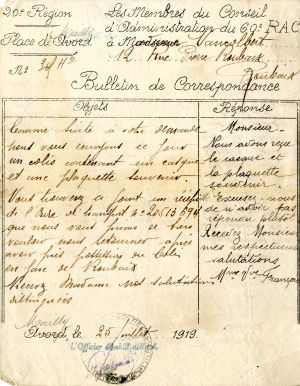 20e Région
Les Membres du Conseil
d'Administration du 60e R.A.C
Place d'Avord Mailly
à Monsieur
12, Rue Pierre Roubaux
Roubaix
No
Bulletin de Correspondance
Objets
Réponse
Comme suite à votre demande
nous vous envoyons ce jour
un colis contenant un casque
et une plaquette souvenir.
Vous trouverez ci joint un récépissé
de l'Ordre de transport
que nous vous prions de bien
vouloir nous retourner après
avoir pris possession du colis
en gare de Roubaix
Recevez Madame nos salutations
distinguées
Monsieur
Nous avons reçu
le casque et
la plaquette
souvenir.
Excusez-nous
de n'avoir pas
répondu plutôt
Recevez Monsieur
mes respectueuses
salutations
François
Mailly
Avord, le 25 Juillet 1919.
L'Officier